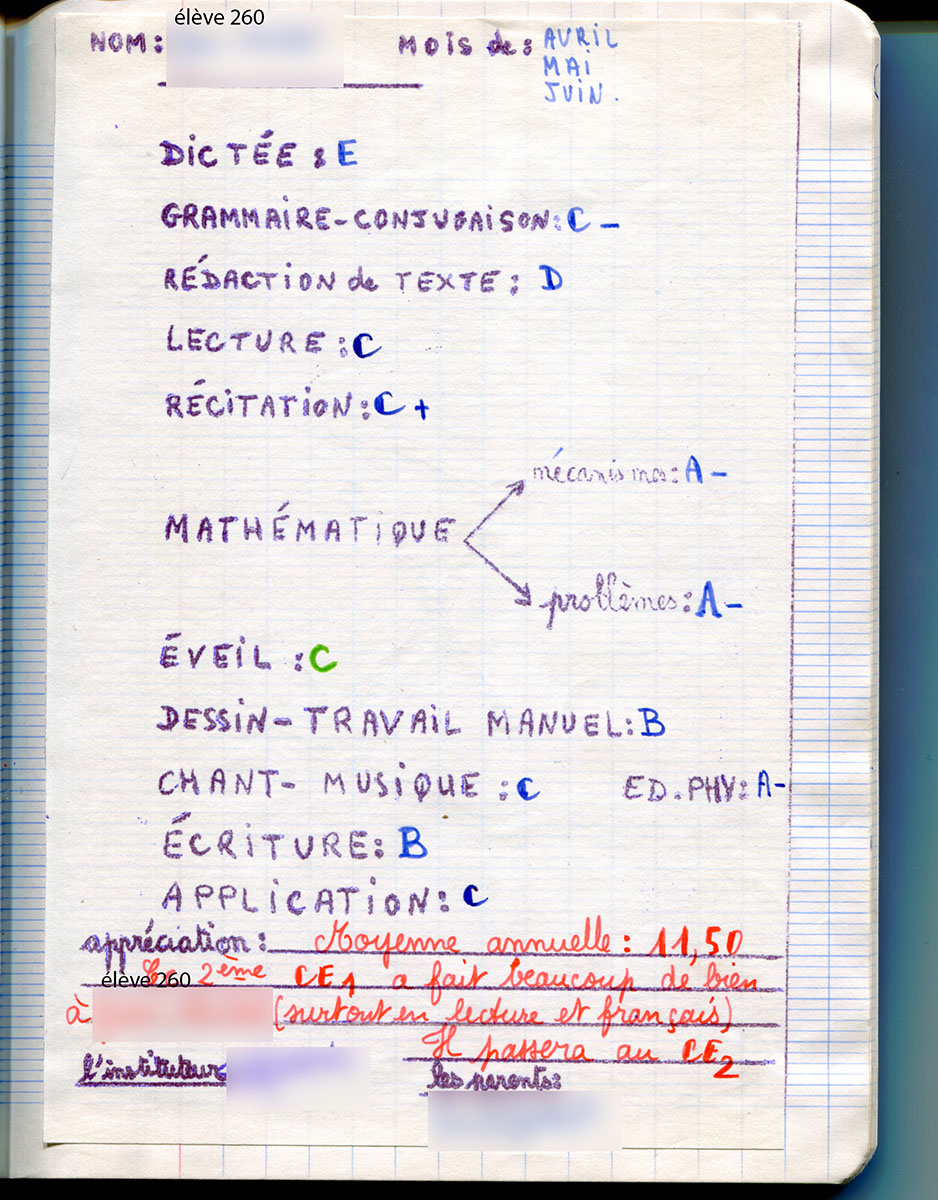 élève 260
NOM:
MOIS de: AVRIL
MAI
JUIN.
DICTÉE : E
GRAMMAIRE-CONJUGAISON: C -
RÉDACTION de TEXTE : D
LECTURE : C
RÉCITATION : C +
mécanismes : A -
MATHÉMATIQUE
problèmes : A -
ÉVEIL : C
DESSIN - TRAVAIL MANUEL : B
CHANT - MUSIQUE : C ED. PHY: A -
ÉCRITURE : B
APPLICATION : C
appréciation : Moyenne annuelle : 11,50
élève 260
Ce 2ème CE1 a fait beaucoup de bien
à (surtout en lecture et français)
Il passera au CE2
l'instituteur
les parents: